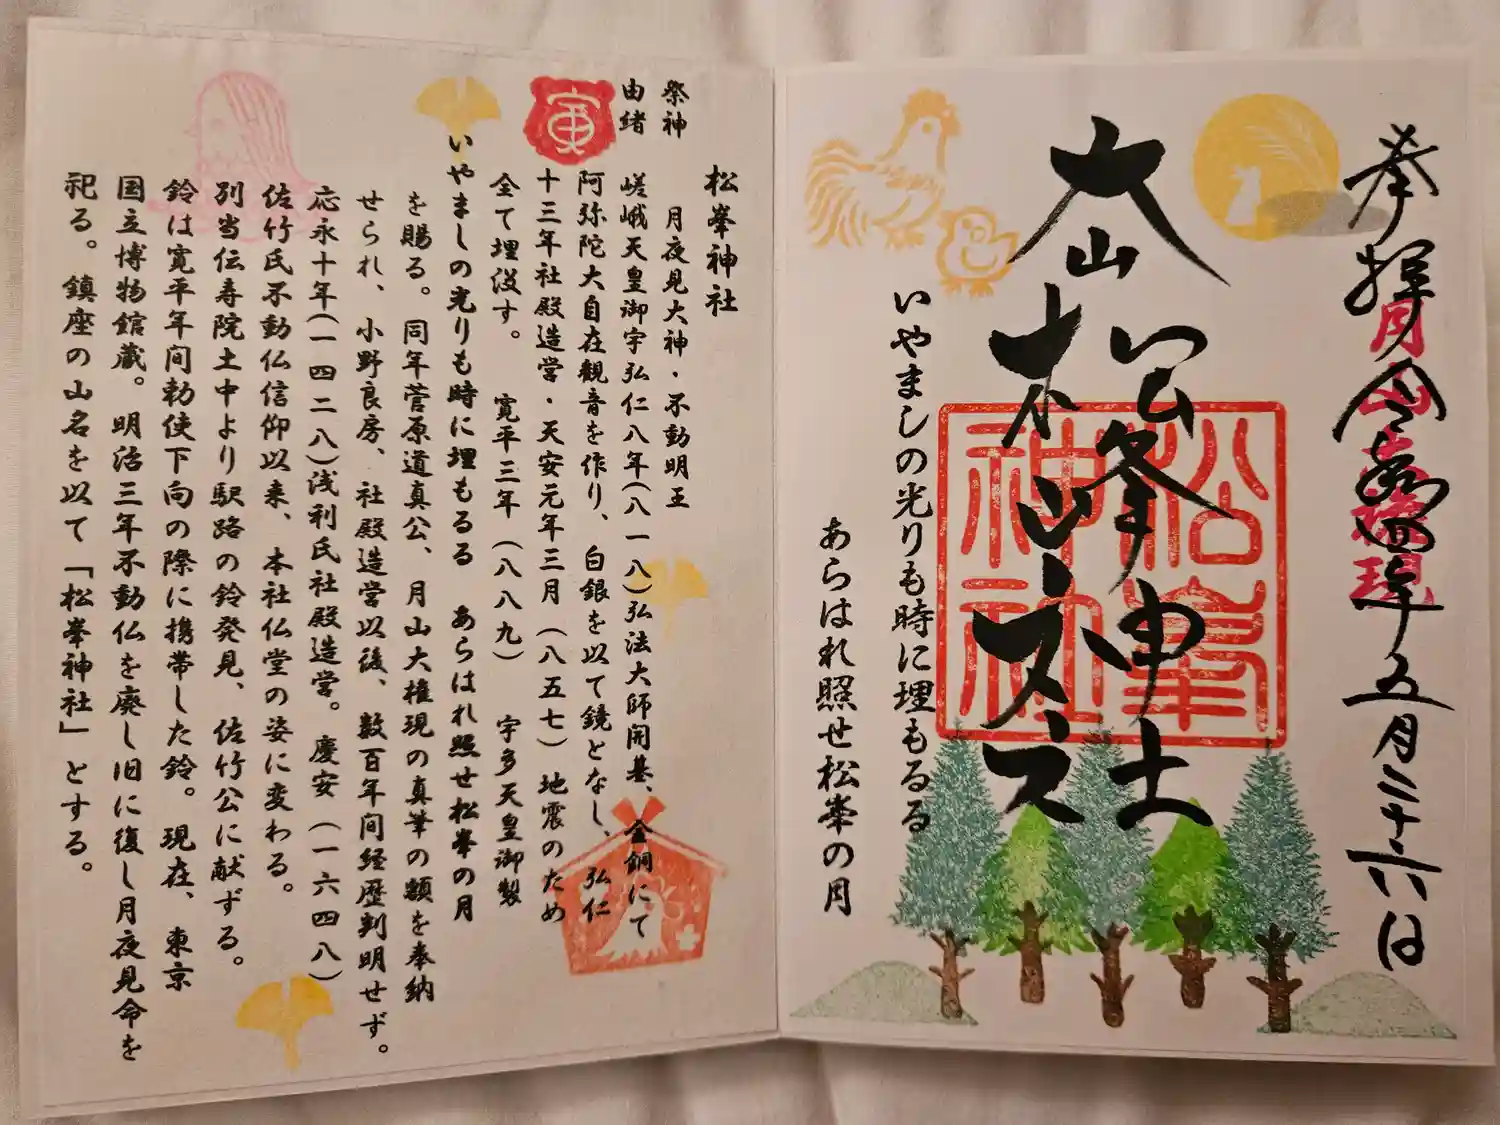 奉拝 令和四年五月二十六日
月山大権現
大山
松峰神社
松峯神社
いやましの光りも時に埋もるる
あらはれ照せ松峯の月
松峯神社
祭神 月夜見大神・不動明王
由緒 嵯峨天皇御宇弘仁八年(八一八)弘法大師開基、金銅にて
阿弥陀大自在観音を作り、白銀を以て鏡となし、弘仁
十三年社殿造営・天安元年三月(八五七)地震のため
全て埋没す。 寛平三年(八八九) 宇多天皇御製
いやましの光りも時に埋もるる あらはれ照せ松峯の月
を賜る。同年菅原道真公、月山大権現の真筆の額を奉納
せられ、小野良房、社殿造営以後、数百年間経歴判明せず。
応永十年(一四二八)浅利氏社殿造営。慶安(一六四八)
佐竹氏不動仏信仰以来、本社仏堂の姿に変わる。
別当伝寿院土中より駅路の鈴発見、佐竹公に献ずる。
鈴は寛平年間勅使下向の際に携帯した鈴。現在、東京
国立博物館蔵。明治三年不動仏を廃し旧に復し月夜見命を
祀る。鎮座の山名を以て「松峯神社」とする。
寅